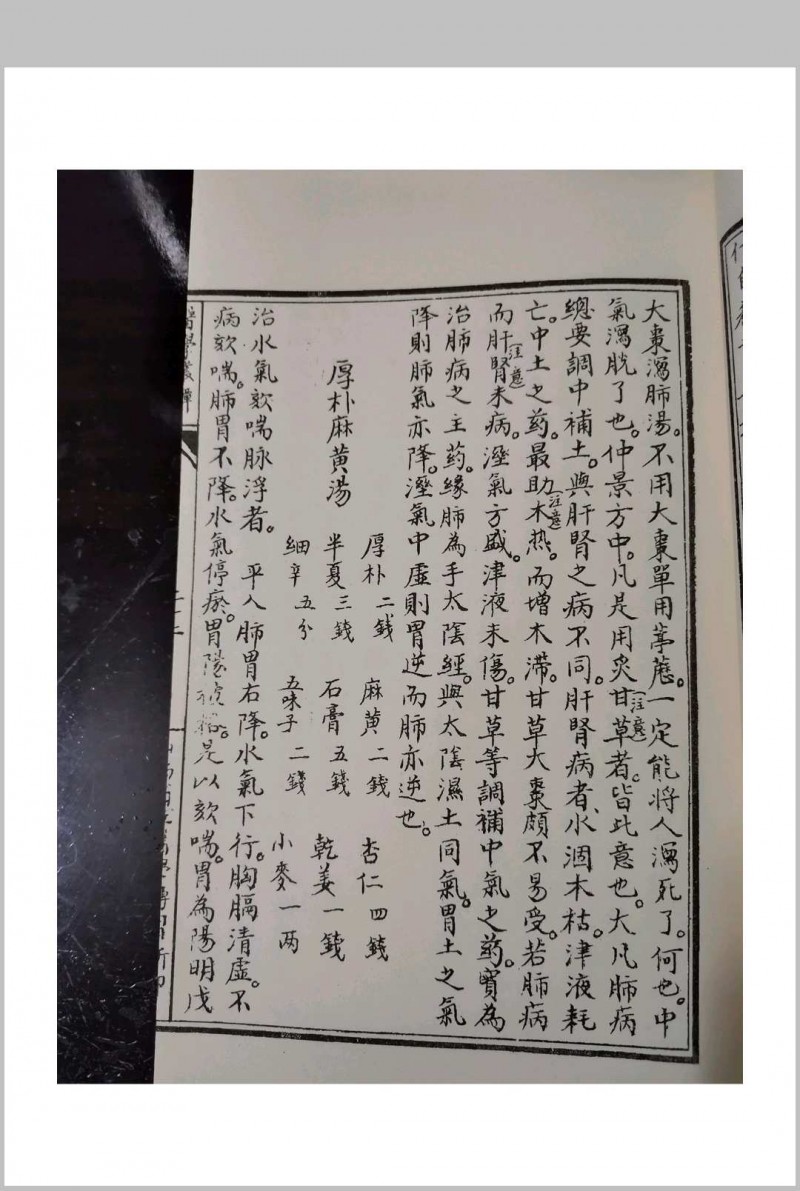 大棗瀉肺湯。不用大棗單用葶藶。一定能將人瀉死了。何也。中
氣瀉脫了也。仲景方中。凡是用炙甘草者。皆此意也。大凡肺病
(注意)
總要調中補土。與肝腎之病不同。肝腎病者、水涸木枯。津液耗
亡。中土之药。最助木热。而增木滞。甘草大棗頗不易受。若肺病
(注意)
而肝腎未病。溼氣方盛。津液未傷。甘草等調補中氣之药。實為
(注意)
治肺病之主药。緣肺為手太陰經。與太陰濕土同氣。胃土之氣
降則肺氣亦降。溼氣中虛則胃逆而肺亦逆也。
厚朴麻黄湯
厚朴二錢 麻黄二錢 杏仁四錢
半夏三錢 石膏五錢 乾姜一錢
細辛五分 五味子二錢 小麥一两
治水氣欬喘脉浮者。平人肺胃右降。水氣下行。胸膈清虛。不
病欬喘。肺胃不降。水氣停瘀。胃隘是以欬喘。胃為陽明戊
醫學
二十二